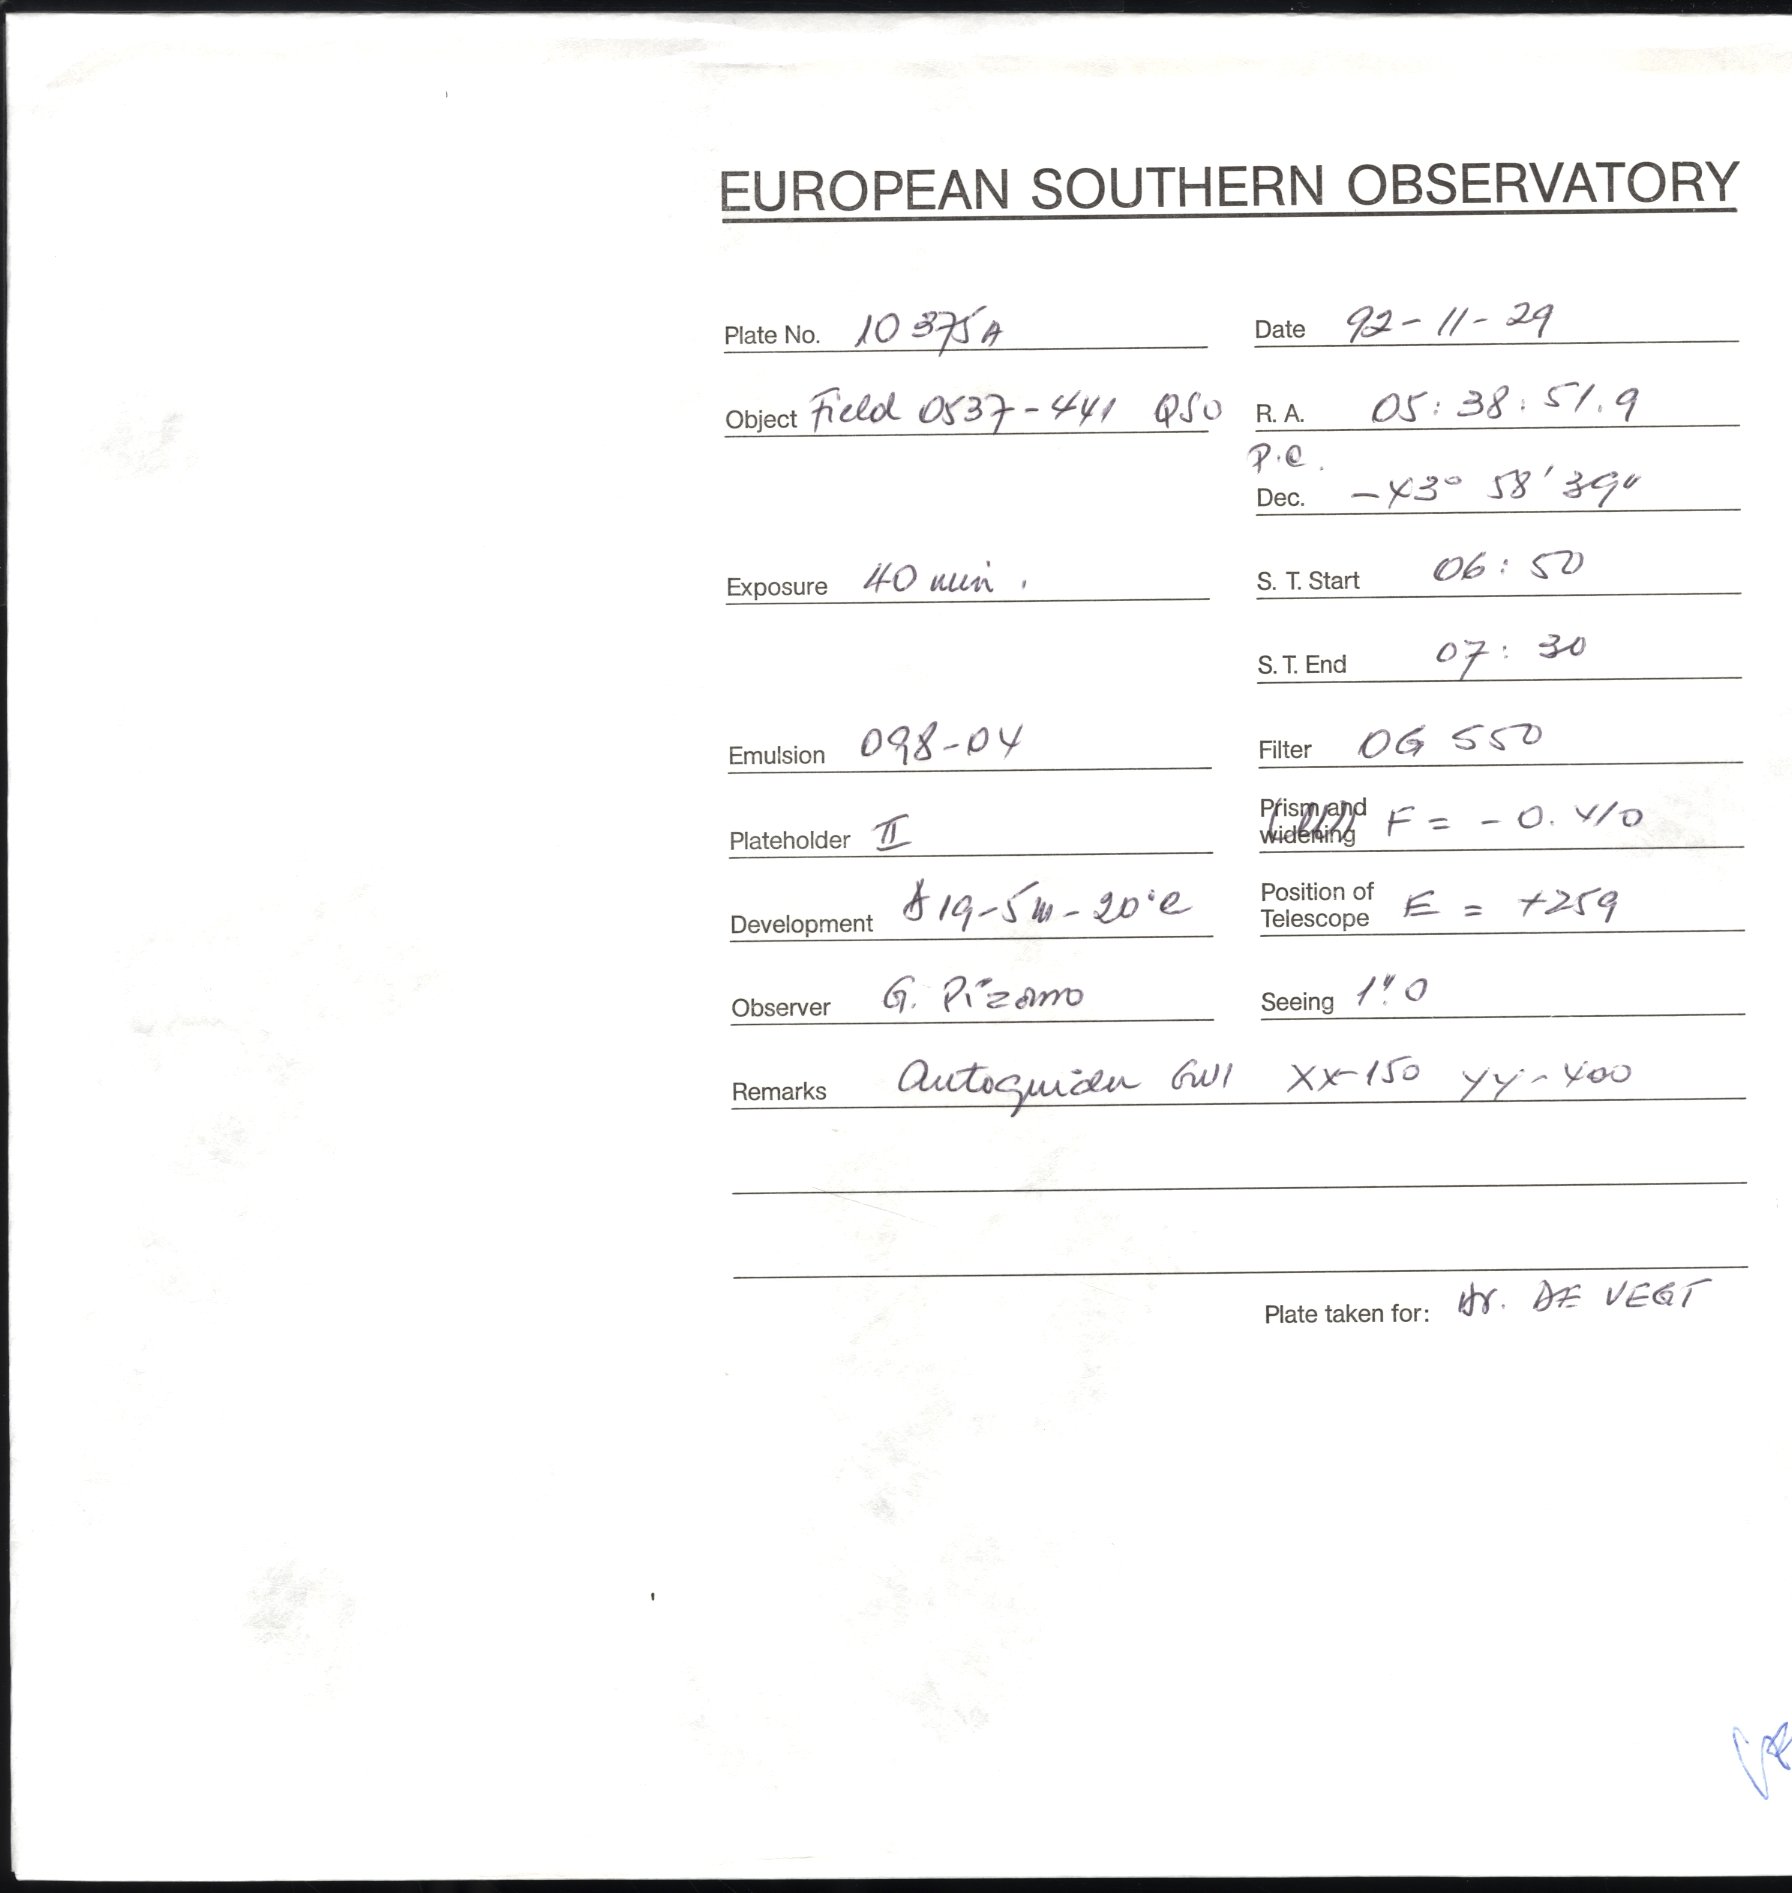 EUROPEAN SOUTHERN OBSERVATORY
Plate No. 10375A Date 92-11-29
Object Field 0537-441 QSO R. A. 05:38:51.9
P.C.
Dec. -43° 58' 39"
Exposure 40 min. S. T. Start 06:50
S. T. End 07:30
Emulsion 098-04 Filter OG 550
Plateholder II Prism and widening F = -0.410
Development D19-5m-20°C Position of Telescope E = +259
Observer G. Pizarro Seeing 1".0
Remarks Autoguider GW1 XX-150 YY-400
Plate taken for: Dr. DE VEGT